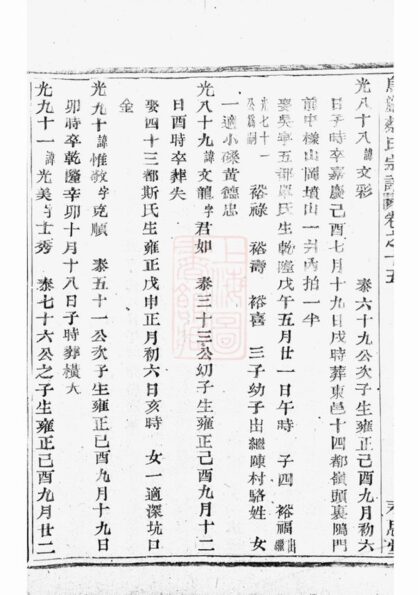 氏宗譜卷之十五
光八十八諱文彩 泰六十九公次子生雍正己酉九月初六
日子時卒嘉慶己酉七月十九日戌時葬東邑十四都嶺頭裏鴈門
前中樣山岡墳山一井內拍一半
娶吳寧五都厲氏生乾隆戊午五月廿一日午時 子四 裕福出
光七十一 裕祿 裕壽 裕喜 三子幼子出繼陳村駱姓 女
一適小磉黃德忠
光八十九諱文龍字君如 泰三十三公幼子生雍正己酉九月十二
日酉時卒葬失
娶四十三都斯氏生雍正戊申正月初六日亥時 女一適深坑口
金
光九十諱惟敎字克順 泰五十一公次子生雍正己酉九月十九日
卯時卒乾隆辛卯十月十八日子時葬橫大
光九十一諱光美字士秀 泰七十六公之子生雍正己酉九月廿二